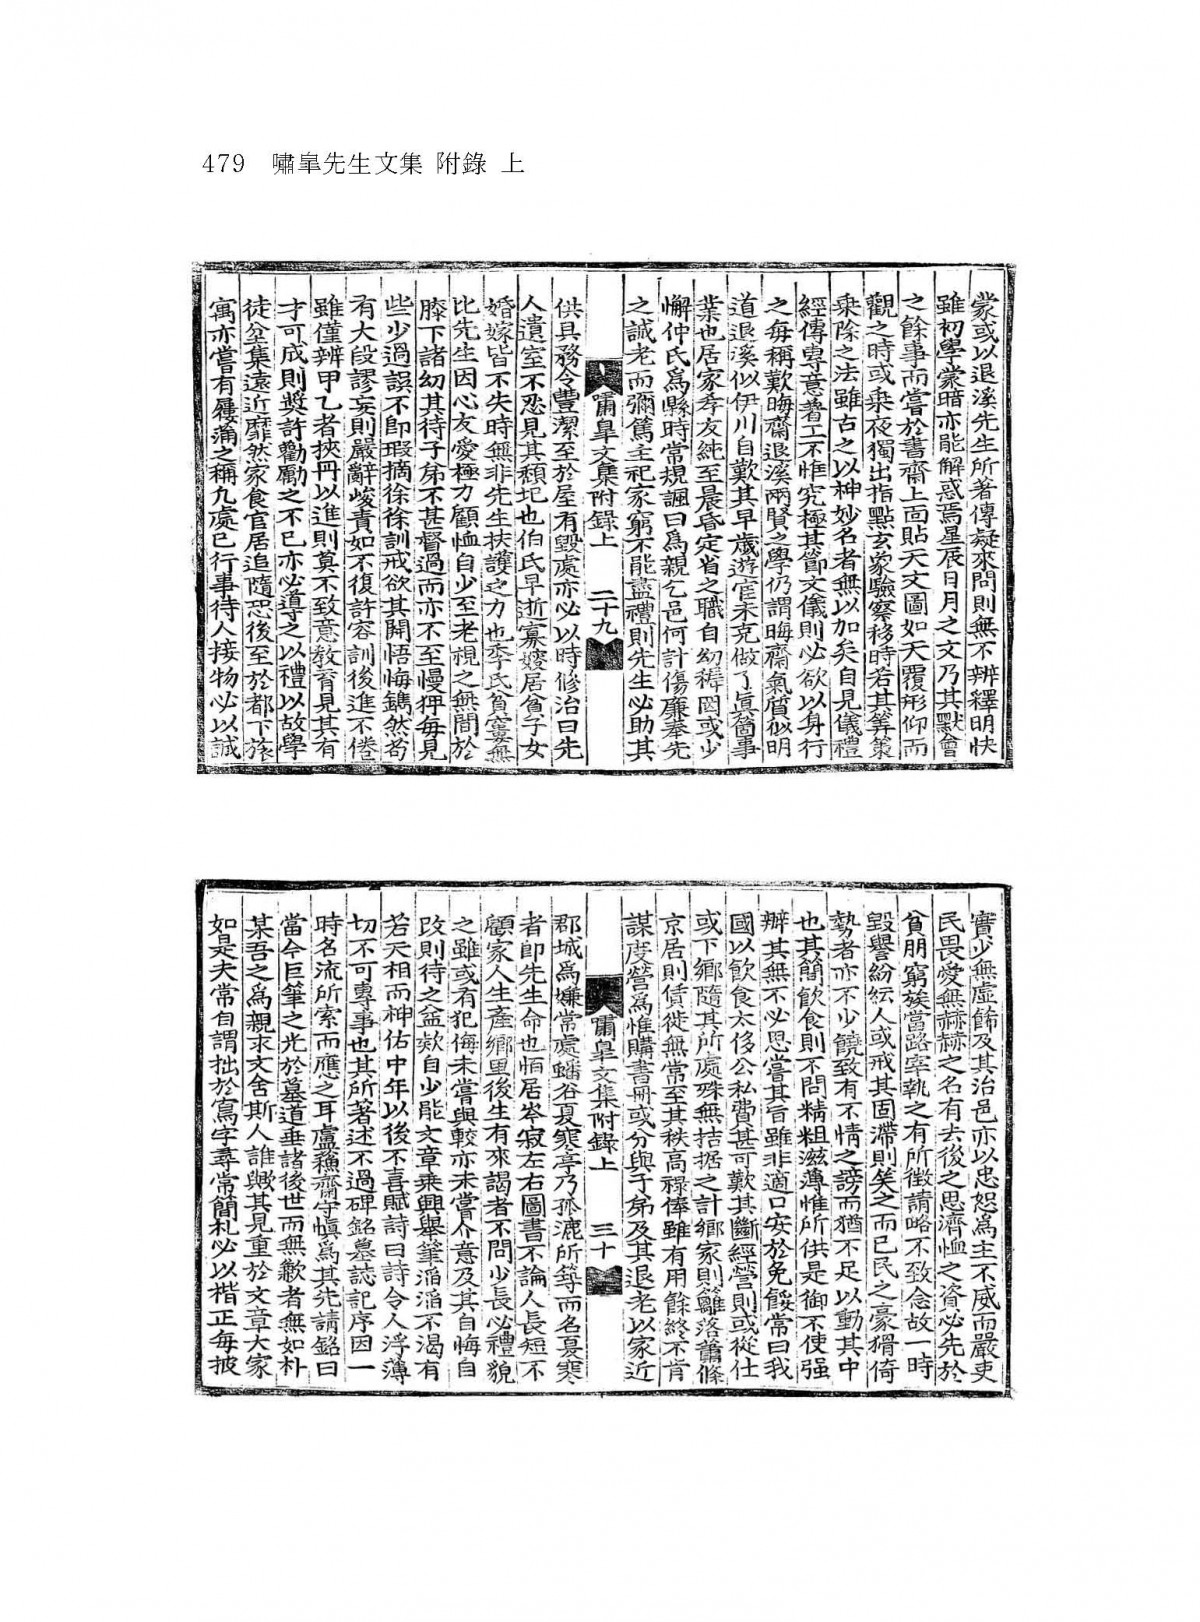 479 嘯皐先生文集 附錄 上
蒙或以退溪先生所著傳疑來問則無不辨釋明快
雖初學蒙暗亦能解惑焉星辰日月之文乃其默會
之餘事而嘗於書齋上面貼天文圖如天覆形仰而
觀之時或乘夜獨出指點玄象驗察移時若其筭策
乘除之法雖古之以神妙名者無以加矣自見儀禮
經傳專意着工不惟究極其節文儀則必欲以身行
之每稱歎晦齋退溪兩賢之學仍謂晦齋氣質似明
道退溪似伊川自歎其早歲遊宦未克做了眞箇事
業也居家孝友純至晨昏定省之職自幼稱固或少
懈仲氏爲縣時常規諷曰爲親乞邑何計傷廉奉先
之誠老而彌篤主祀家窮不能盡禮則先生必助其
嘯皐文集附錄上 二十九
供具務令豐潔至於屋有毀處亦必以時修治曰先
人遺室不忍見其頹圯也伯氏早逝寡嫂居貧子女
婚嫁皆不失時無非先生扶護之力也季氏貧窶無
比先生因心友愛極力顧恤自少至老視之無間於
膝下諸幼其待子弟不甚督過而亦不至慢狎每見
些少過誤不卽瑕摘徐徐訓戒欲其開悟悔鐫然苟
有大段謬妄則嚴辭峻責如不復許容訓後進不倦
雖僅辨甲乙者挾冊以進則莫不致意敎育見其有
才可成則奬許勸勵之不已亦必導之以禮以故學
徒坌集遠近靡然家食官居追隨恐後至於都下旅
寓亦嘗有屨滿之稱凡處已行事待人接物必以誠
實少無虛飾及其治邑亦以忠恕爲主不威而嚴吏
民畏愛無赫赫之名有去後之思濟恤之資必先於
貧朋窮族當路宰執之有所徵請略不致念故一時
毀譽紛紜人或戒其固滯則笑之而已民之豪猾倚
勢者亦不少饒致有不情之謗而猶不足以動其中
也其簡飮食則不問精粗滋薄惟所供是御不使强
辦其無不必思嘗其旨雖非適口安於免餒常曰我
國以飮食太侈公私費甚可歎其斷經營則或從仕
或下鄕隨其所處殊無拮据之計鄕家則籬落蕭條
京居則賃徙無常至其秩高祿俸雖有用餘終不肯
謀度營爲惟購書冊或分與子弟及其退老以家近
嘯皐文集附錄上 三十
郡城爲嫌常處蟠谷夏寒亭乃孤漉所築而名夏寒
者卽先生命也恒居岑寂左右圖書不論人長短不
顧家人生產鄕里後生有來謁者不問少長必禮貌
之雖或有犯侮未嘗與較亦未嘗介意及其自悔自
改則待之益欵自少能文章乘興舉筆滔滔不渴有
若天相而神佑中年以後不喜賦詩曰詩令人浮薄
切不可專事也其所著述不過碑銘墓誌記序因一
時名流所索而應之耳盧蘓齋守愼爲其先請銘曰
當今巨筆之光於墓道垂諸後世而無歉者無如朴
某吾之爲親求文舍斯人誰歟其見重於文章大家
如是夫常自謂拙於寫字尋常簡札必以楷正每披